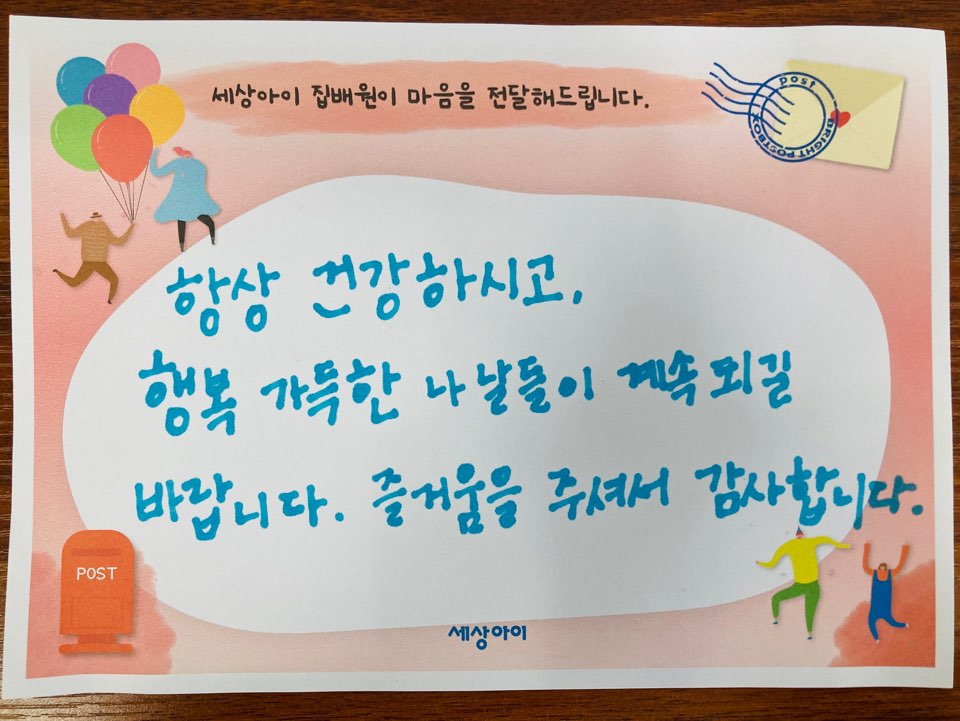 세상아이 집배원이 마음을 전달해드립니다.
POST
BRIGHT POSTBOX
항상 건강하시고,
행복 가득한 나날들이 계속되길
바랍니다. 즐거움을 주셔서 감사합니다.
POST
세상아이